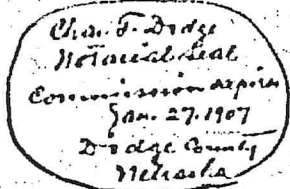 Chas. F. Dodge
Notarial Seal
Commission expires
Jan. 27. 1907
Dodge County
Nebraska